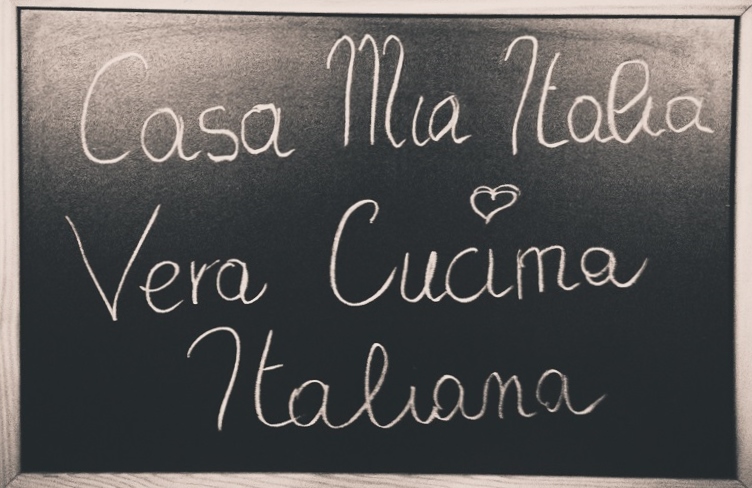 Casa Mia Italia
Vera Cucina
Italiana